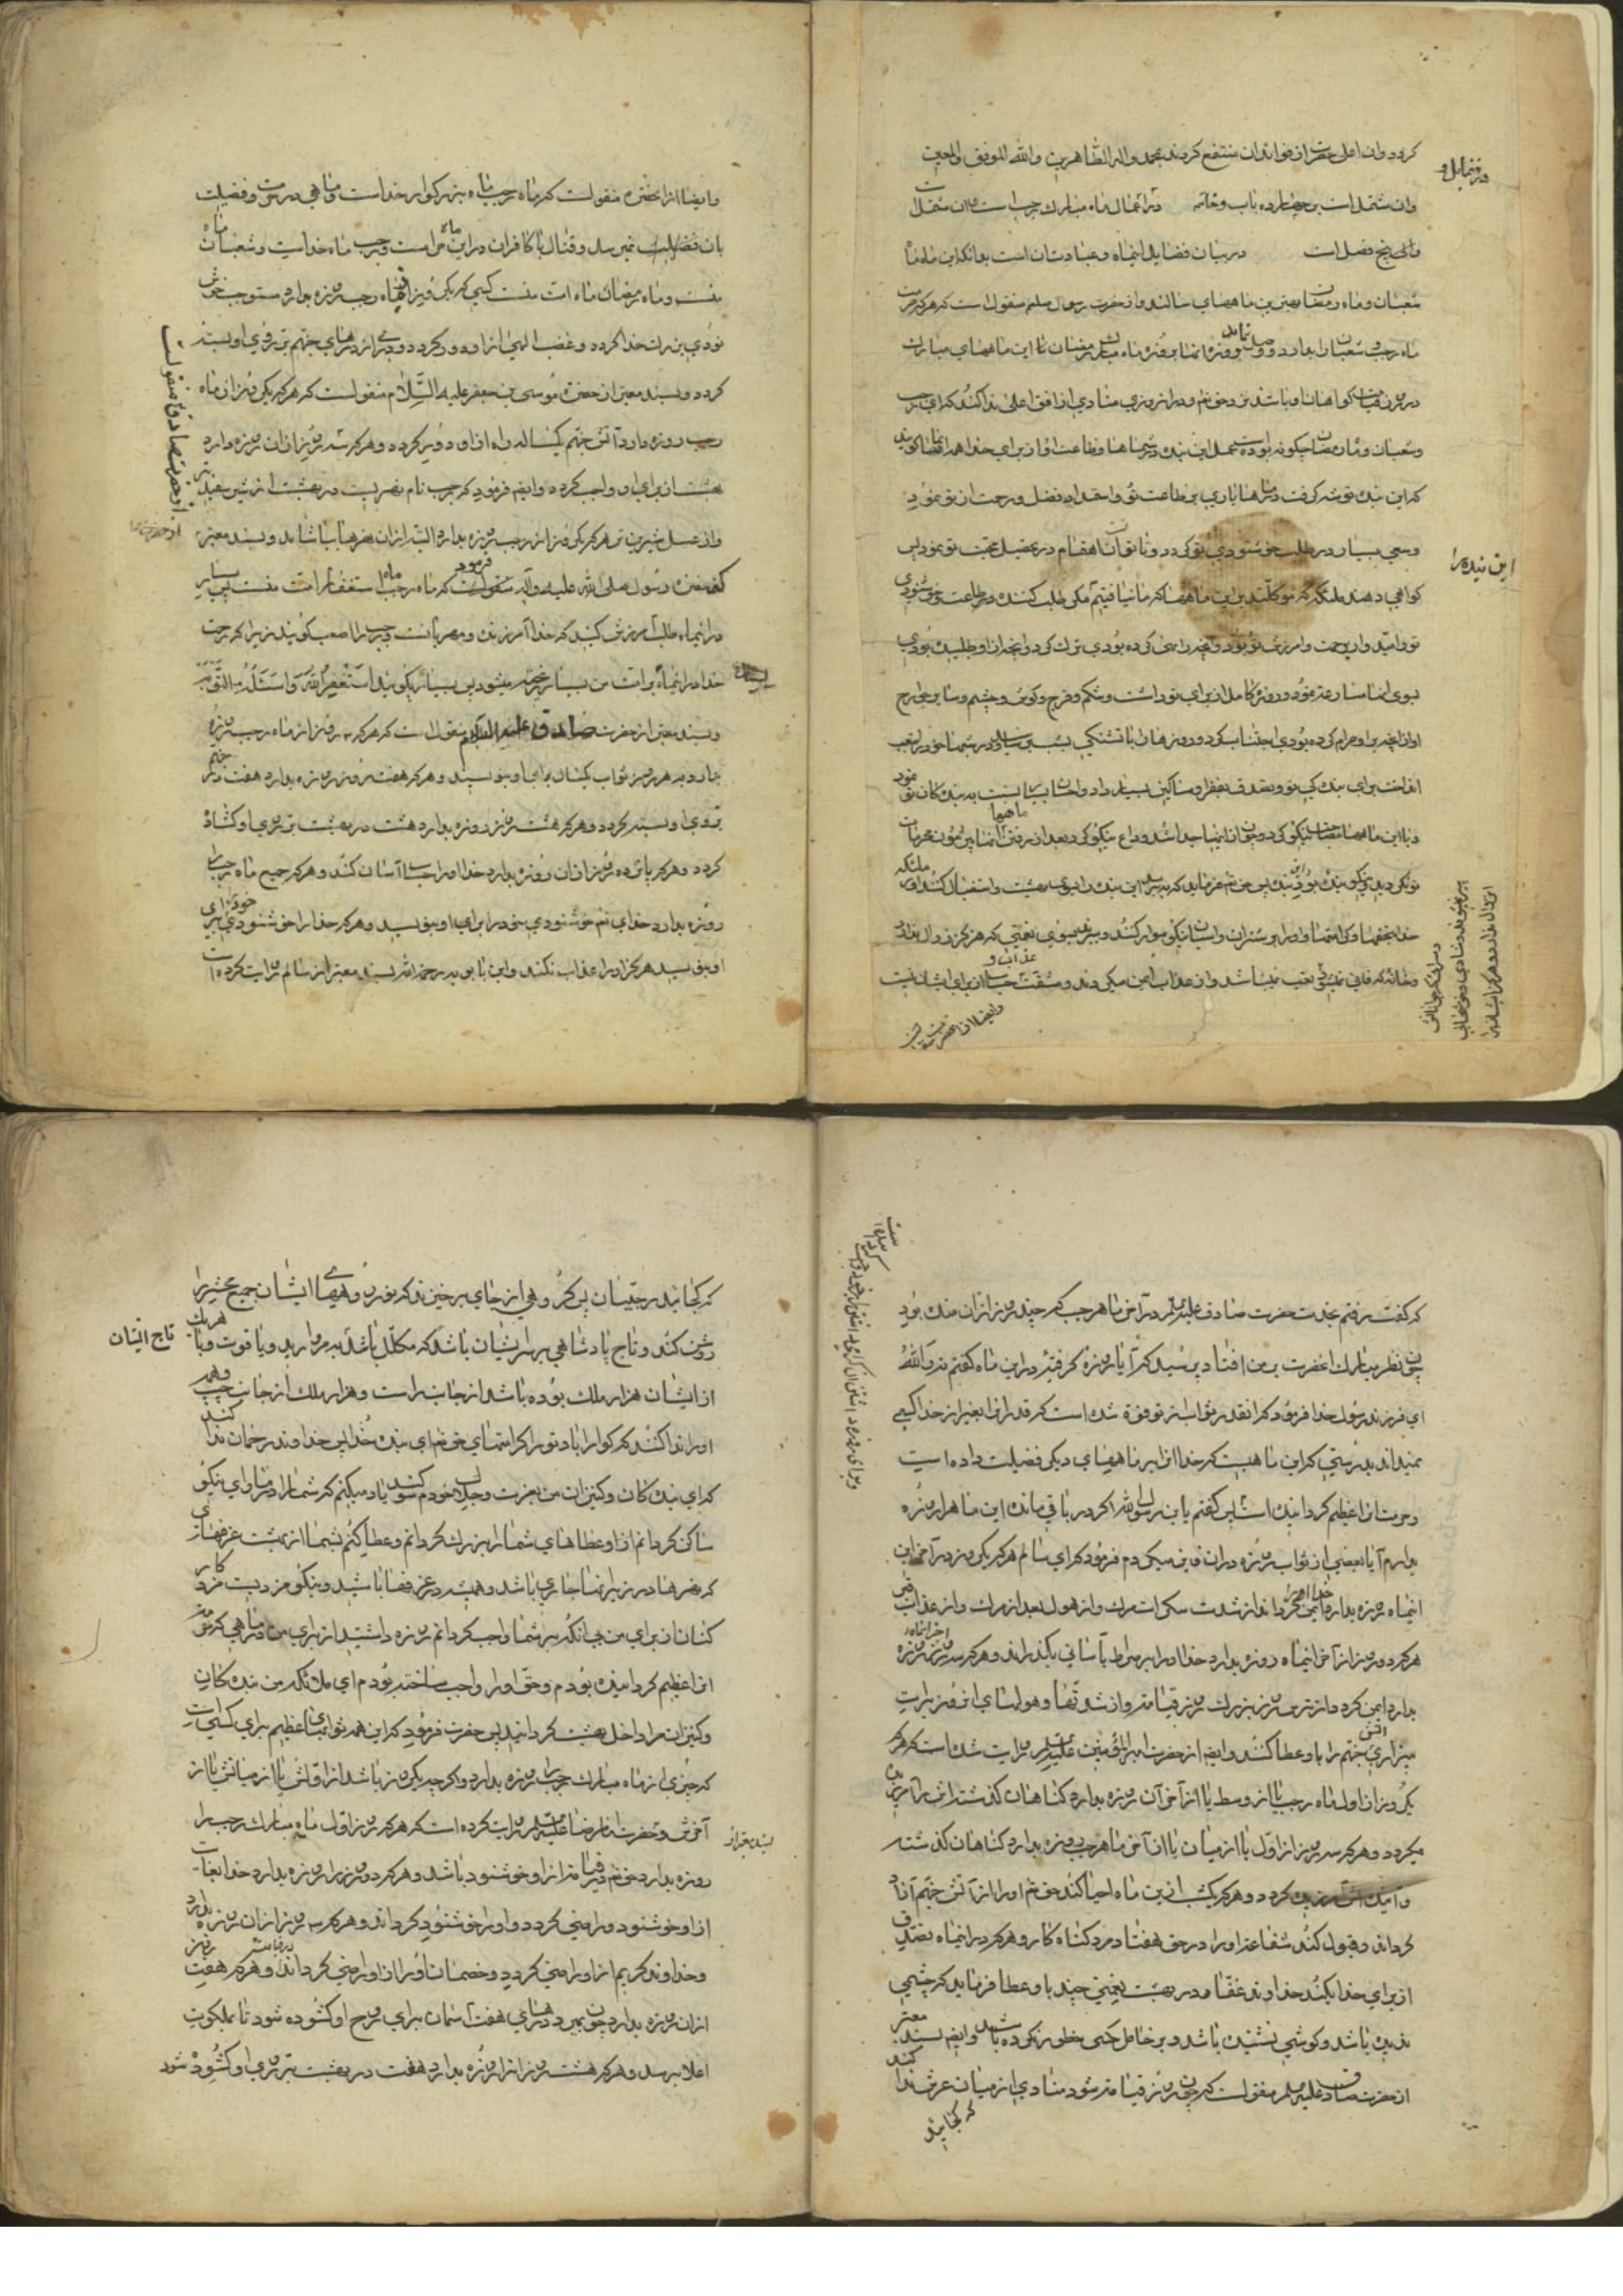 کردد وان اعلی حضرت از فواید ان منتفع کردند بمحمد واله الطاهرین والله الموفق والمعین
در فضایل و
وان مشتملست بر چهارده باب و خاتمه در اعمال ماه مبارک رجب است وان مشتمل
بر پنج فصل است در بیان فضایل اینماه و عبادتان است بدانکه این ماه ماه
شعبان و ماه رمضان بهترین ماههای سالند و از حضرت رسول صلعم منقولست که هرکه حرمت
ماه رجب و شعبان را بدارد و وصل نماید روزه انها بروزه ماه مبارک رمضان تا این ماههای مبارک
در روز قیامت کواهان او باشند نزد حق تعم و در ان روز منادی از افق اعلی ندا کند که ای رجب
و شعبان و ماه رمضان چکونه بوده است عمل این بنده در شما و طاعت او از برای خدا همه انها کویند
که این بنده توشه کرفت در ما یاری بر طاعت تو و استمداد فضل و رحمت از تو نمود
و سعی بسیار در طلب خوشنودی تو کرد و تا توانست اهتمام در تحصیل محبت تو نمود پس
این بنده را
کواهی دهند ملئکه که موکلند بر این ماهها که ما نیافتیم مکر طلب کننده در طاعت و خوشنودی
تو و امیدوار برحمت و امرزش تو بود و انچه را نهی کرده بودی ترک کرد و انچه از او طلبیده بودی
بسوی انها مسارعت نمود و روزه کامل از برای تو داشت و شکم و فرج و کوش و چشم و سایر جوارح
او از انچه بر او حرام کرده بودی اجتناب کرد و روزها را با تشنکی بسر رسانید و در شبها خود را بتعب
انداخت برای بندکی تو و تصدق بفقرا و مساکین بسیار داد و احسان بسیار نسبت به بندکان تو نمود
و با این ماهها مصاحبت نیکو کرد و چون از اینها جدا شد وداع نیکو کرد و بعد از رفتن ماهها پیرامون محرمات
تو نکردید نیکو بنده بود این بنده پس حق تعم فرماید که ببرید این بنده را بسوی بهشت و استقبال کنند او را ملئکه
خدا بتحفها و کرامتها و او را بر شتران و اسبان نیکو سوار کنند و ببرند بسوی نعمتی که هرکز زوال ندارد
و خانه که فانی نمیشود و تعب نمیباشد و از عذاب ایمن میکردند و مشقت عذاب و حساب از برای ایشان نیست
وایضا از انحضرت منقولست
وایضا از انحضرت منقولست که ماه رجب ماه بزرکوار خداست و ماهی در حرمت و فضیلت
بان نمیرسد و قتال با کافران در این ماه حرامست و رجب ماه خداست و شعبان ماه
منست و ماه رمضان ماه امت منست کسی که یک روز از ماه رجب روزه بدارد مستوجب خوش
نودی بزرک خدا کردد و غضب الهی از او دور کردد و دری از درهای جهنم بر روی او بسته
کردد و بسند معتبر از حضرت موسی بن جعفر علیه السلام منقولست که هرکه یک روز از ماه
رجب روزه دارد آتش جهنم یکساله راه از او دور کردد و هرکه سه روز از ان روزه دارد
بهشت از برای او واجب کردد و ایضم فرمود که رجب نام نهریست در بهشت از شیر سفیدتر
و از عسل شیرین تر هرکه یک روز از رجب روزه بدارد البته از ان نهرها بیاشامد و بسند معتبر
از حضرت صادق منقولست
که حضرت رسول صلی الله علیه واله فرمود که ماه رجب ماه استغفار امت منست پس بسیار
در اینماه طلب امرزش کنید که خدا آمرزنده و مهربانست و رجب را اصب کویند زیرا که رحمت
خدا در اینماه بر امت من بسیار ریخته میشود پس بسیار بکویید استغفر الله و اسئله التوبه
و بسند معتبر از حضرت صادق علیه السلام منقولست که هرکه سه روز از ماه رجب روزه
بدارد به هر روز ثواب یکسال برای او بنویسند و هرکه هفت روز روزه بدارد هفت در جهنم
بروی او بسته کردد و هرکه هشت روز روزه بدارد هشت در بهشت بر روی او کشاده
کردد و هرکه پانزده روز از ان روزه بدارد خدا او را حساب آسان کند و هرکه جمیع ماه رجب را
روزه بدارد خدای تعم خوشنودی خود را برای او بنویسد و هرکه خدا را خوشنودی برای
او بنویسد هرکز او را عذاب نکند و ابن بابویه رحمه الله بسند معتبر از سالم روایت کرده است
که گفت رفتم بخدمت حضرت صادق علیه السلام در آخر ماه رجب که چند روز از ان مانده بود
چون نظر مبارک انحضرت بر من افتاد پرسید که آیا روزه کرفتهٔ در این ماه کفتم نه والله
ای فرزند رسول خدا فرمود که انقدر ثواب از تو فوت شده است که قدر انرا بغیر از خدا کسی
نمیداند بدرستی که این ماهیست که خدا انرا بر ماههای دیکر فضیلت داده است
و حرمت انرا عظیم کردانیده است پس کفتم یابن رسول الله اکر در باقی مانده این ماه روزه
بدارم آیا ببعضی از ثواب روزه داران فایز میکردم فرمود که ای سالم هرکه یک روز در آخر این
اینماه روزه بدارد خدا او را ایمن کرداند از شدت سکرات مرک و از هول بعد از مرک و از عذاب قبر
هرکه دو روز از آخر اینماه روزه بدارد خدا او را بر صراط بآسانی بکذراند و هرکه سه روز از آخر اینماه روزه
بدارد ایمن کردد از ترس روز بزرک روز قیامت و از شدتها و هولهای ان روز و برات
بیزاری از آتش جهنم را باو عطا کنند و ایضم از حضرت امیرالمؤمنین علیه السلم روایت شده است که هرکه
یکروز از اول ماه رجب یا از وسط یا از آخر آن روزه بدارد کناهان کذشته اش آمرزیده
میکردد و هرکه سه روز از اول یا از میان یا از آخر ماه رجب روزه بدارد کناهان کذشته
و آینده اش آمرزیده کردد و هرکه یکشب از این ماه احیا کند حق تعم او را از آتش جهنم آزاد
کرداند و قبول کند شفاعت او را در حق هفتاد مرد کناه کار و هرکه در اینماه تصدق
از برای خدا بکند خداوند عالم در بهشت نعمتی چند باو عطا فرماید که چشمی
ندیده باشد و کوشی نشنیده باشد و بر خاطر کسی خطور نکرده باشد و ایضم بسند معتبر
از حضرت صادق علیه السلم منقولست که چون روز قیامت شود منادی از میان عرش ندا کند
که کجایند
که کجایند رجبیان پس کروهی از جای برخیزند که نور روهای ایشان جمیع محشر را
روشن کند و تاج پادشاهی بر سر ایشان باشد که مکلل باشد بمروارید و یاقوت و با هر یک
تاج ایشان
از ایشان هزار ملک بوده باشد از جانب راست و هزار ملک از جانب چپ و همه
او را ندا کنند که کوارا باد تو را کرامتهای حق تعم ای بنده خدا پس خداوند رحمان ندا کند
که ای بندکان و کنیزان من بعزت و جلال خودم سوکند یاد میکنم که شما را در ماوای نیکو
ساکن کردانم و عطاهای شما را بزرک کردانم و عطا کنم بشما از بهشت غرفهای
که نهرها در زیر انها جاری باشد و همیشه در غرفها باشید و نیکو مزدیست مزد کار
کنان از برای من جانکه بر شما واجب کردانم روزه داشتید از برای من در ماهی که حرمت
انرا عظیم کردانیده بودم و حق او را واجب ساخته بودم ای ملائکه من بندکان
و کنیزان مرا داخل بهشت کردانید پس حضرت فرمود که این همه ثوابهای عظیم برای کسی است
که چیزی از ماه مبارک رجب را روزه بدارد و اکرچه یک روز باشد از اولش یا از میانش یا از
آخرش و بسند معتبر از حضرت امام رضا علیه السلم روایت کرده است که هرکه روز اول ماه مبارک رجب را
روزه بدارد حق تعم در قیامت از او خوشنود باشد و هرکه دو روز را روزه بدارد خدا بغایت
از او خوشنود و راضی کردد و او را خوشنود کرداند و هرکه سه روز از ان روزه بدارد
و خداوند کریم از او راضی کردد و خصمان او را از او راضی کرداند و هرکه هفت روز
از ان روزه بدارد چون بمیرد درهای هفت اسمان برای روح او کشوده شود تا بملکوت
اعلا برسد و هرکه هشت روز از انرا روزه بدارد هشت در بهشت بر روی او کشوده شود